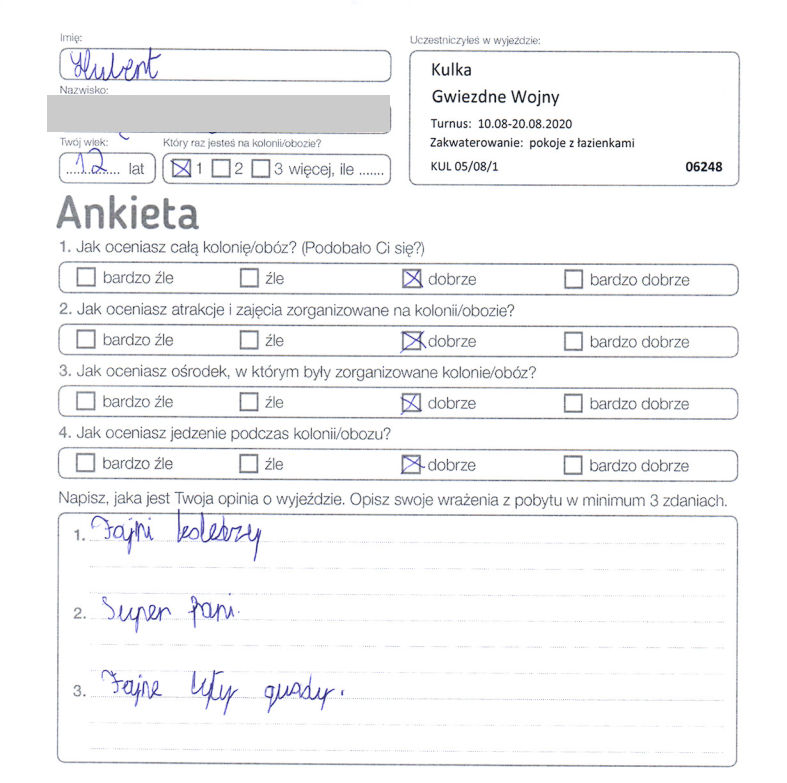 Imię:
Hubert
Nazwisko:
Twój wiek:
Który raz jesteś na kolonii/obozie?
12 lat
1 2 3 więcej, ile .......
Uczestniczyłeś w wyjeździe:
Kulka
Gwiezdne Wojny
Turnus: 10.08-20.08.2020
Zakwaterowanie: pokoje z łazienkami
KUL 05/08/1
06248
Ankieta
1. Jak oceniasz całą kolonię/obóz? (Podobało Ci się?)
bardzo źle źle dobrze bardzo dobrze
2. Jak oceniasz atrakcje i zajęcia zorganizowane na kolonii/obozie?
bardzo źle źle dobrze bardzo dobrze
3. Jak oceniasz ośrodek, w którym były zorganizowane kolonie/obóz?
bardzo źle źle dobrze bardzo dobrze
4. Jak oceniasz jedzenie podczas kolonii/obozu?
bardzo źle źle dobrze bardzo dobrze
Napisz, jaka jest Twoja opinia o wyjeździe. Opisz swoje wrażenia z pobytu w minimum 3 zdaniach.
1. Fajni koledzy
2. Super pani.
3. Fajne były quady.